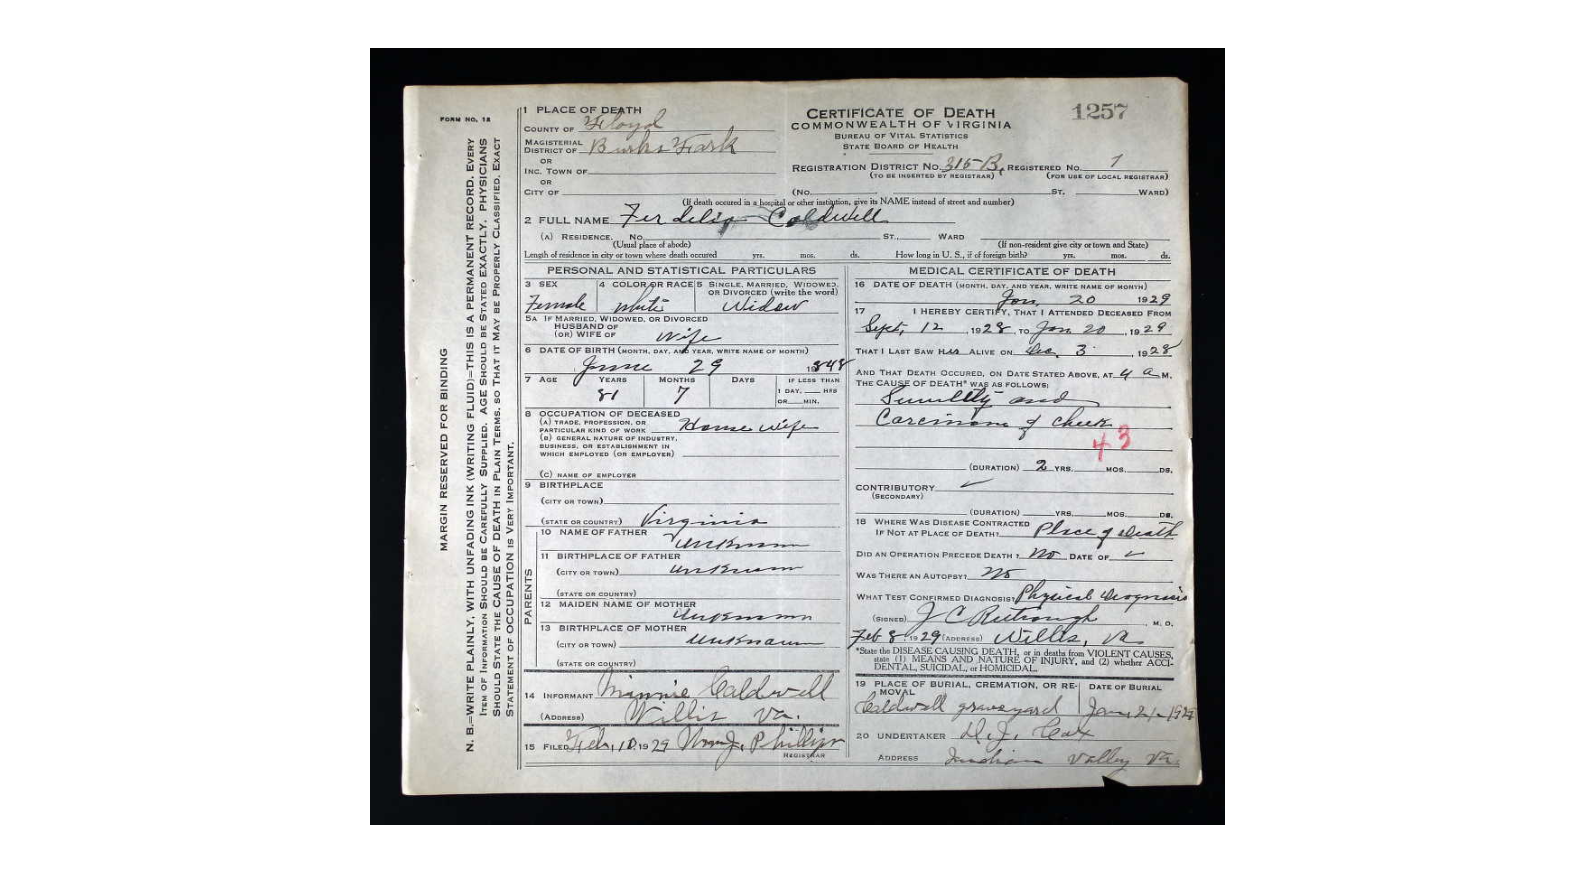 FORM NO. 12
MARGIN RESERVED FOR BINDING
N. B.=WRITE PLAINLY, WITH UNFADING INK (WRITING FLUID)=THIS IS A PERMANENT RECORD. EVERY
ITEM OF INFORMATION SHOULD BE CAREFULLY SUPPLIED. AGE SHOULD BE STATED EXACTLY. PHYSICIANS
SHOULD STATE THE CAUSE OF DEATH IN PLAIN TERMS, SO THAT IT MAY BE PROPERLY CLASSIFIED. EXACT
STATEMENT OF OCCUPATION IS VERY IMPORTANT.
1 PLACE OF DEATH
COUNTY OF Floyd
MAGISTERIAL
DISTRICT OF Burks Fork
OR
INC. TOWN OF
OR
CITY OF
CERTIFICATE OF DEATH
COMMONWEALTH OF VIRGINIA
BUREAU OF VITAL STATISTICS
STATE BOARD OF HEALTH
1257
REGISTRATION DISTRICT NO. 315-B, REGISTERED NO. 7
(TO BE INSERTED BY REGISTRAR) (FOR USE OF LOCAL REGISTRAR)
(NO. ST. WARD)
(If death occured in a hospital or other institution, give its NAME instead of street and number)
2 FULL NAME Caldwell
(A) RESIDENCE. NO. ST., WARD
(Usual place of abode) (If non-resident give city or town and State)
Length of residence in city or town where death occured yrs. mos. ds. How long in U. S., if of foreign birth? yrs. mos. ds.
PERSONAL AND STATISTICAL PARTICULARS
3 SEX 4 COLOR OR RACE 5 SINGLE, MARRIED, WIDOWED,
OR DIVORCED (write the word)
Female white Widow
5A IF MARRIED, WIDOWED, OR DIVORCED
HUSBAND OF
(OR) WIFE OF Wife
6 DATE OF BIRTH (MONTH, DAY, AND YEAR, WRITE NAME OF MONTH)
June 29 1848
7 AGE YEARS MONTHS DAYS IF LESS THAN
1 DAY, HRS
OR MIN.
81 7
8 OCCUPATION OF DECEASED
(A) TRADE, PROFESSION, OR
PARTICULAR KIND OF WORK House wife
(B) GENERAL NATURE OF INDUSTRY,
BUSINESS, OR ESTABLISHMENT IN
WHICH EMPLOYED (OR EMPLOYER)
(C) NAME OF EMPLOYER
9 BIRTHPLACE
(CITY OR TOWN)
(STATE OR COUNTRY) Virginia
PARENTS
10 NAME OF FATHER
Unknown
11 BIRTHPLACE OF FATHER
(CITY OR TOWN) Unknown
(STATE OR COUNTRY)
12 MAIDEN NAME OF MOTHER
Unknown
13 BIRTHPLACE OF MOTHER
(CITY OR TOWN) Unknown
(STATE OR COUNTRY)
14 INFORMANT Minnie Caldwell
(ADDRESS) Willis Va.
15 FILED Feb, 10, 1929 Wm J. Phillips
REGISTRAR
MEDICAL CERTIFICATE OF DEATH
16 DATE OF DEATH (MONTH, DAY, AND YEAR, WRITE NAME OF MONTH)
Jan, 20 1929
17 I HEREBY CERTIFY, THAT I ATTENDED DECEASED FROM
Sept, 12, 1928, TO Jan 20, 1929
THAT I LAST SAW HER ALIVE ON Dec. 3, 1928
AND THAT DEATH OCCURED, ON DATE STATED ABOVE, AT 4 a M.
THE CAUSE OF DEATH* WAS AS FOLLOWS:
and
Carcinoma of cheek
43
(DURATION) 2 YRS. MOS. DS.
CONTRIBUTORY
(SECONDARY)
(DURATION) YRS. MOS. DS.
18 WHERE WAS DISEASE CONTRACTED
IF NOT AT PLACE OF DEATH? Place of death
DID AN OPERATION PRECEDE DEATH? No DATE OF
WAS THERE AN AUTOPSY? No
WHAT TEST CONFIRMED DIAGNOSIS? Physical Diagnosis
(SIGNED) J C , M. D.
Feb 8, 1929 (ADDRESS) Willis, Va
*State the DISEASE CAUSING DEATH, or in deaths from VIOLENT CAUSES,
state (1) MEANS AND NATURE OF INJURY, and (2) whether ACCI-
DENTAL, SUICIDAL, or HOMICIDAL.
19 PLACE OF BURIAL, CREMATION, OR RE-
MOVAL DATE OF BURIAL
Caldwell graveyard Jan, 21-1929
20 UNDERTAKER D. J. Cox
ADDRESS Indian Valley Va.